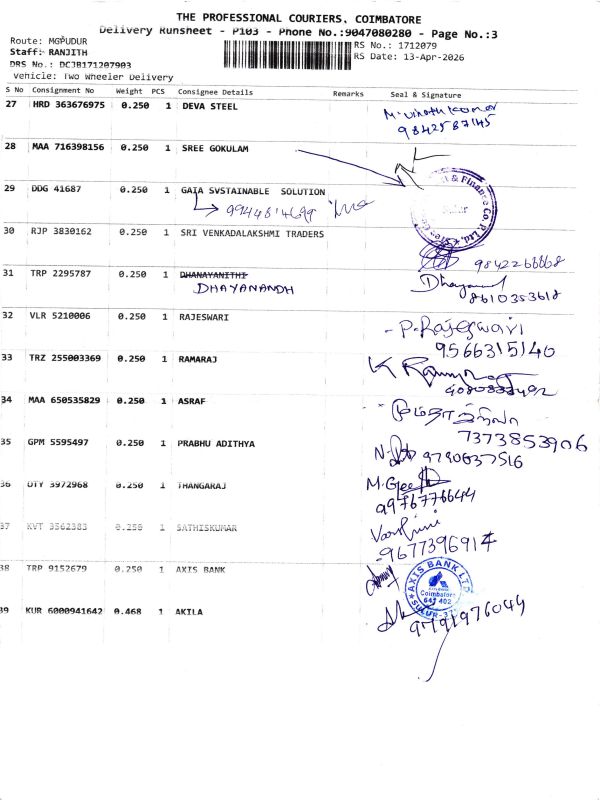 THE PROFESSIONAL COURIERS, COIMBATORE
Delivery Runsheet - P103 - Phone No.:9047080280 - Page No.:3
Route: MGPUDUR
RS No.: 1712079
Staff: RANJITH
RS Date: 13-Apr-2026
DRS No.: DCJB171207903
Vehicle: Two Wheeler Delivery
S No Consignment No Weight PCS Consignee Details Remarks Seal & Signature
27 HRD 363676975 0.250 1 DEVA STEEL
9842587145
28 MAA 716398156 0.250 1 SREE GOKULAM
29 DDG 41687 0.250 1 GAIA SVSTAINABLE SOLUTION
9944614699
& Finance Co
30 RJP 3830162 0.250 1 SRI VENKADALAKSHMI TRADERS
9842266668
31 TRP 2295787 0.250 1 DHANAYANITHI
DHAYANANDH
8610353618
32 VLR 5210006 0.250 1 RAJESWARI
P. Rajeswari
9566315140
33 TRZ 255003369 0.250 1 RAMARAJ
34 MAA 650535829 0.250 1 ASRAF
7373853906
35 GPM 5595497 0.250 1 PRABHU ADITHYA
9790637516
36 OTY 3972968 0.250 1 THANGARAJ
9976776644
37 KVT 3562383 0.250 1 SATHISKUMAR
9677396914
38 TRP 9152679 0.250 1 AXIS BANK
AXIS BANK LTD
Coimbatore
641 402
39 KUR 6000941642 0.468 1 AKILA
9791976044